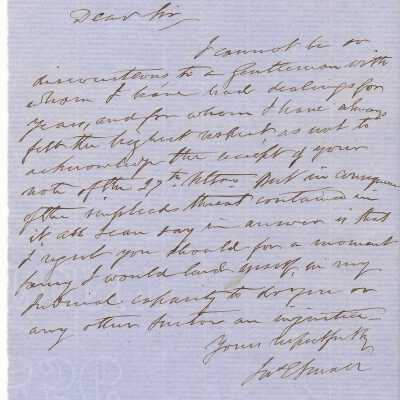 Dear Sir,
I cannot be so
discourteous to a gentleman with
whom I have had dealings for
years, and for whom I have always
felt the highest respect as not to
acknowledge the receipt of your
note of the 27th Ultimo. But in consequence
of the implied threat contained in
it all I can say in answer is that
I regret you should for a moment
fancy I would lend myself in my
Judicial capacity to do you or
any other Suitor an injustice
Yours respectfully